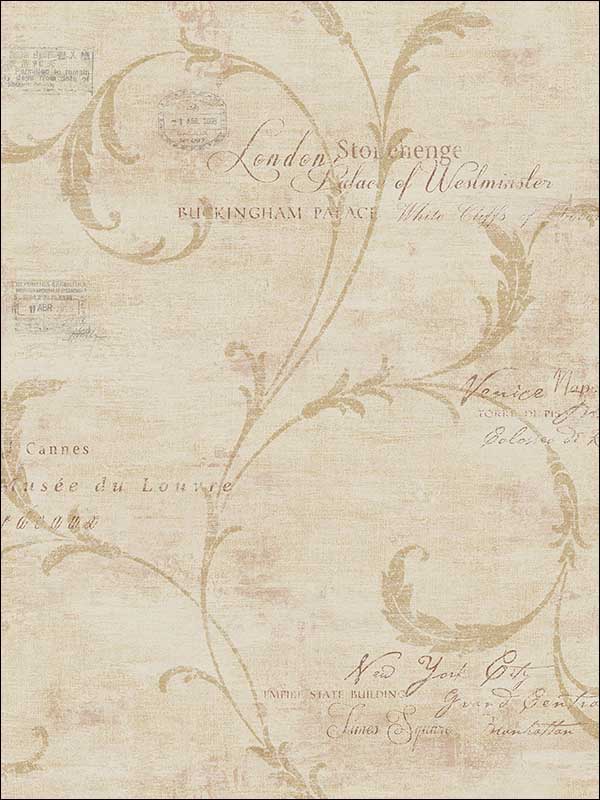 Permitted to remain
- 1 ABR
London
Stonehenge
Palace of Westminster
BUCKINGHAM PALACE White Cliffs of
11 ABR
Venice
TORRE DI
Colosseo di
Cannes
Musée du Louvre
New York City
EMPIRE STATE BUILDING
Grand Centra
Times Square
Manhattan